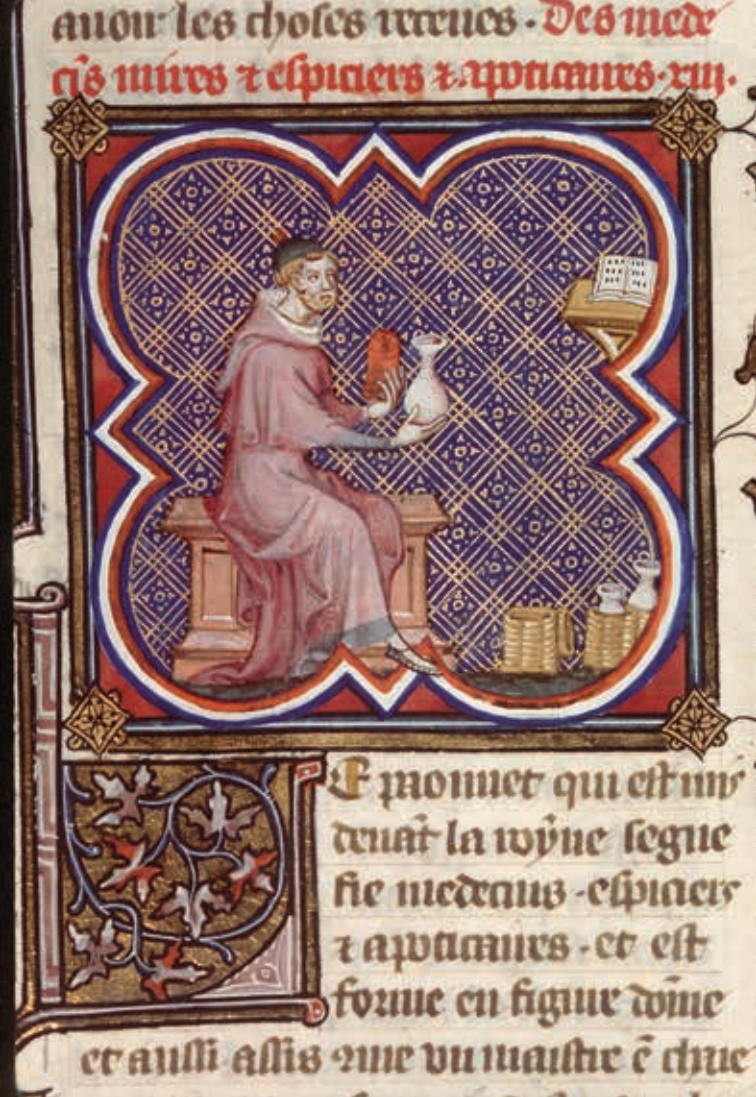 auoir les choses receues. Des mede
cĩs mires ⁊ espiciers ⁊ apoticaires. xiii.
Le paonnet qui est mis
deuãt la royne segne
fie medecins. espiciers
⁊ apoticaires. et est
forme en figure dõme
et aussi assis ꝯme vn maistre ẽ chae